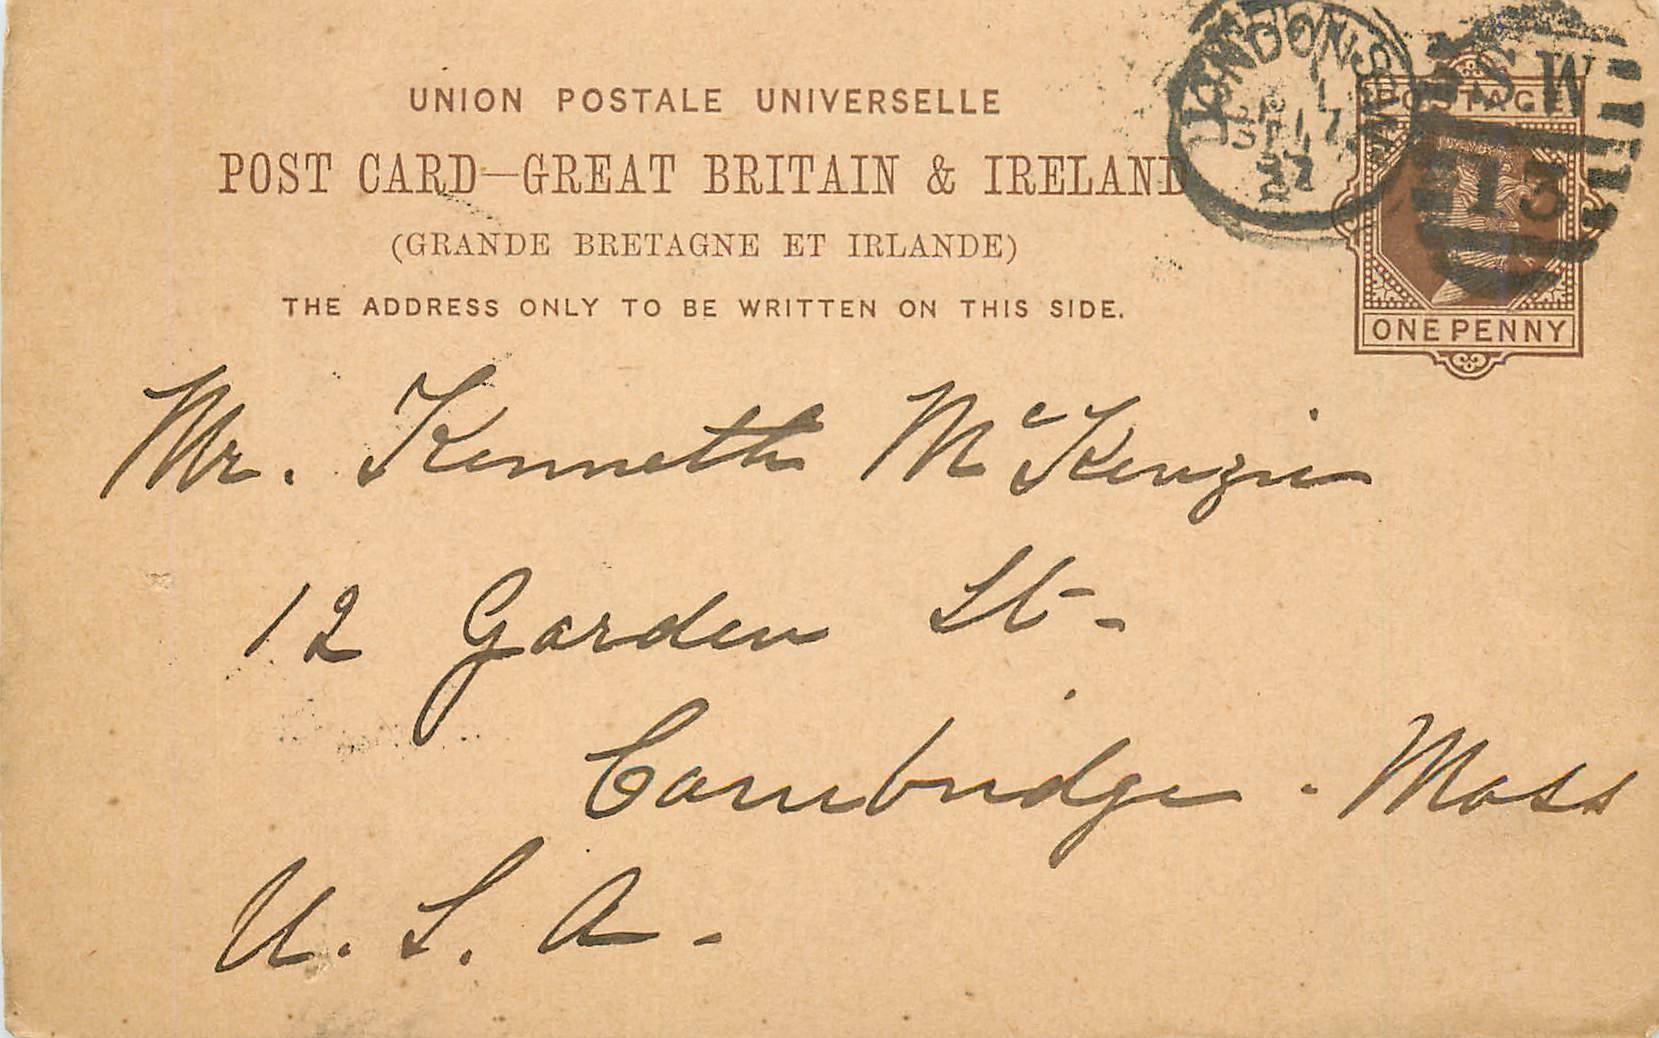 UNION POSTALE UNIVERSELLE
POST CARD—GREAT BRITAIN & IRELAND
(GRANDE BRETAGNE ET IRLANDE)
THE ADDRESS ONLY TO BE WRITTEN ON THIS SIDE.
LONDON S.W.
SP 17
POSTAGE
SW
13
ONE PENNY
Mr. Kenneth McKenzie
12 Garden St-
Cambridge. Mass
U. S. A.